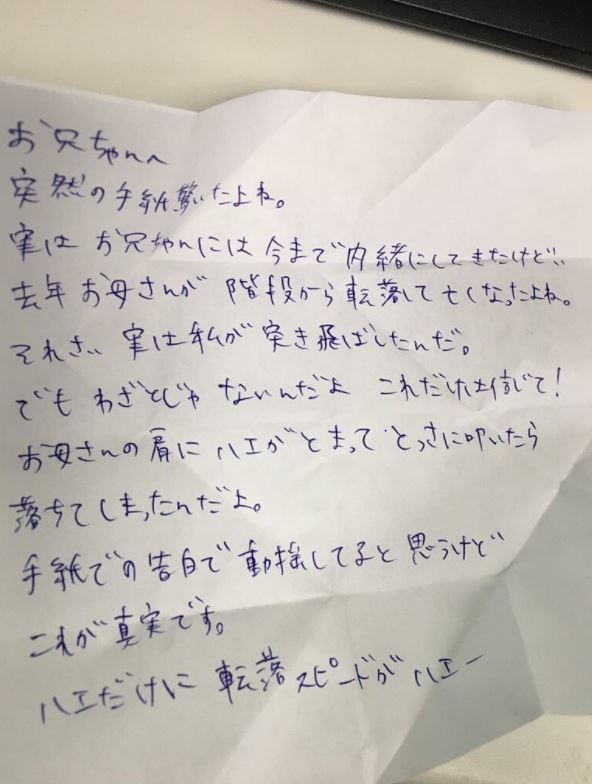 お兄ちゃんへ
突然の手紙驚いたよね。
実は お兄ちゃんには今まで内緒にしてきたけど…
去年お母さんが 階段から転落して亡くなったよね。
それさ、実は私が突き飛ばしたんだ。
でも わざとじゃ ないんだよ これだけは信じて!
お母さんの肩に ハエがとまって とっさに叩いたら
落ちてしまったんだよ。
手紙での告白で動揺してると思うけど
これが真実です。
ハエだけに 転落スピードがハエー